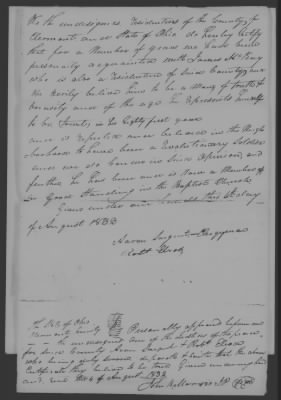 We the undersigned, residenters of the County of
Clermont and State of Ohio do hereby Certify
that for a Number of years we have been
personally acquainted with James
who is also a residenter of said County and
we verily believe him to be a Man of truth &
veracity and of the age he represents himself
to be towits in his Eighty first year
and is reputed and believed in the Neigh
borhood to have been a Revolutionary Soldier
and we do concur in said opinion and
further he has been and is now a Member of
in Good Standing in the Baptist Church
Given under our hands this day
of August 1832
Aaron Sargent Clergyman
Robt
The State of Ohio
Clermont County Personally appeared before me
the undersigned one of the Justices of the peace
for said County Aaron Sargent & Robt
who being duly sworn deposeth & saith that the above
Certificate they believe to be true Given under my hand
and seal this of August 1832
John